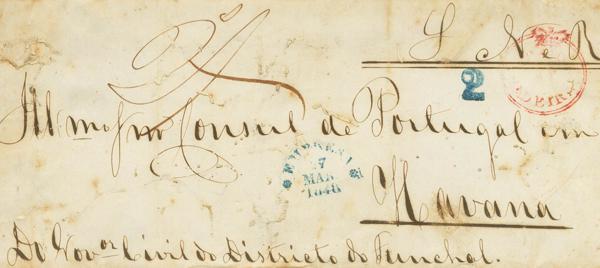 S N e R
2
Illmo Snr Consul de Portugal em
EMPRESA
7
MAR
1848
Havana
Do Govor Civil do Districto do Funchal.